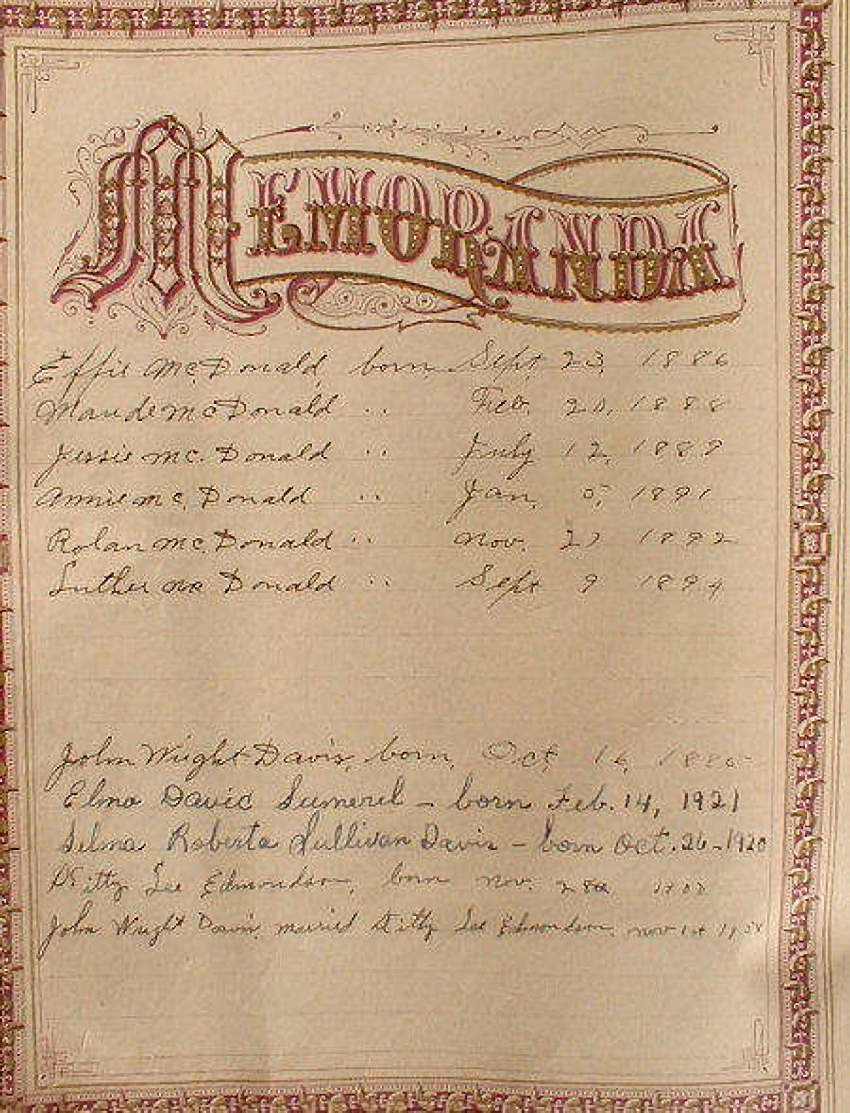 MEMORANDA
Effie McDonald, born Sept. 23, 1886
Maude McDonald " Feb. 20, 1888
Jessie Mc. Donald " July 12, 1889
Annie Mc. Donald " Jan. 5, 1891
Rolan Mc. Donald " Nov. 1892
Luther Mc Donald " Sept 9 1894
John Wright Davis, born, Oct. 16,
Elma David Sumerel – born Feb. 14, 1921
Selma Roberta Sullivan Davis – born Oct. 26 – 1920
Lee Edmondson, born Nov.
John Wright Davis, married Lee Edmondson, Nov 1st